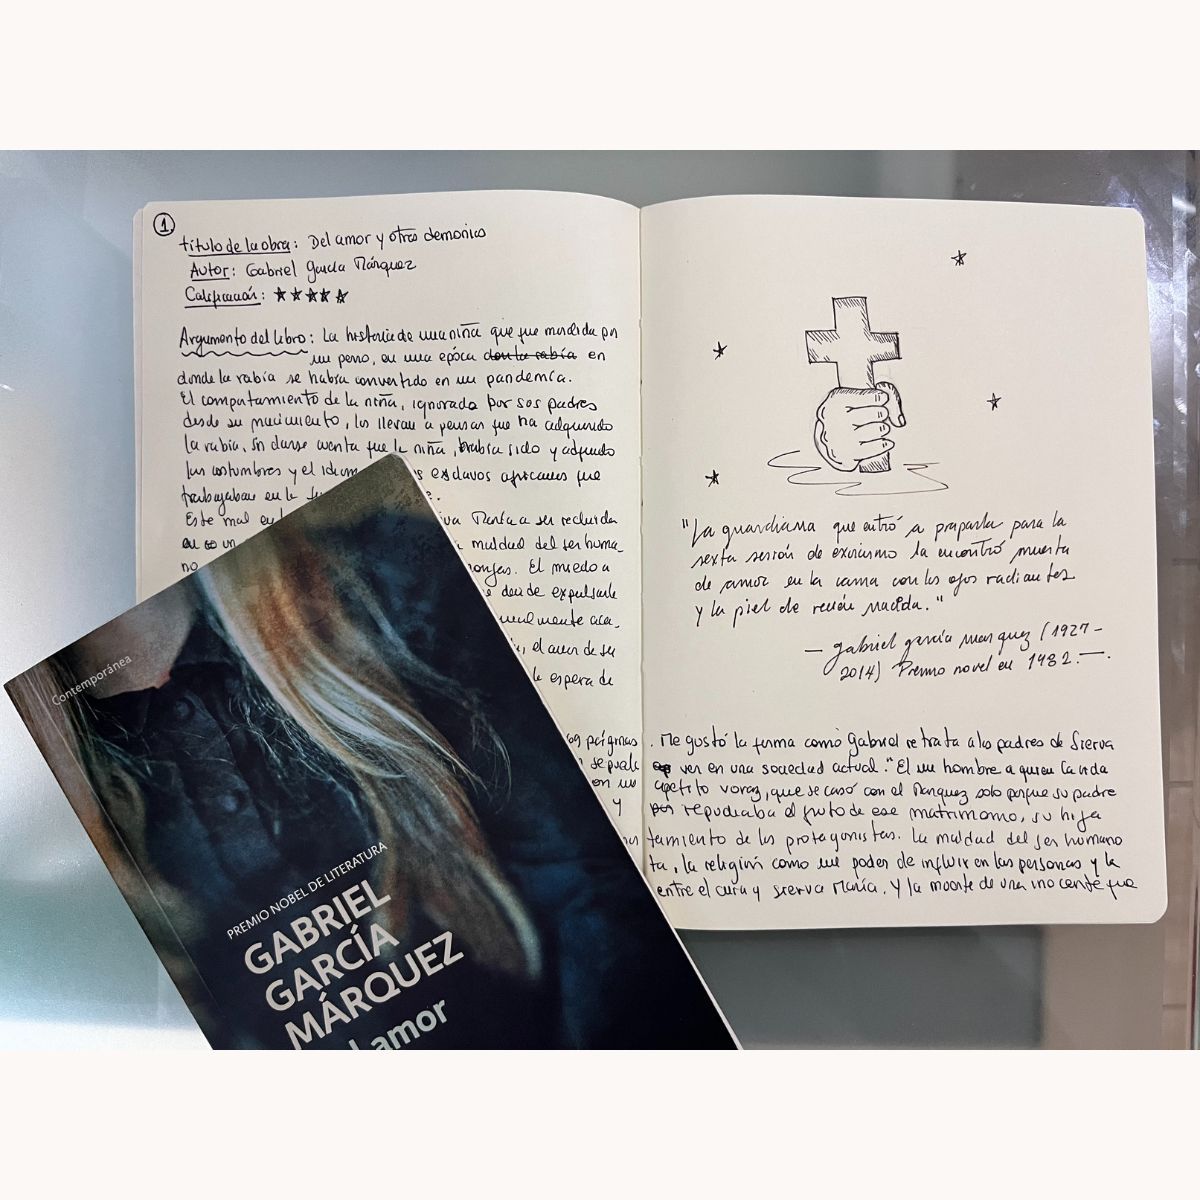 1.
título de la obra: Del amor y otros demonios
Autor: Gabriel García Márquez
Calificación: ★★★★★
Argumento del libro: La historia de una niña que fue mordida por
un perro, en una época con la rabia en
donde la rabia se había convertido en un pandemia.
El comportamiento de la niña, ignorada por sos padres
desde su nacimiento, los llevan a pensar que ha adquirido
la rabia, sin darse cuenta que la niña, había sido y
las costumbres y el esclavos africanos que
trabajaban en la
Este mal María a ser recluida
un maldad del ser huma_
no monjas. El miedo a
de expulsarle
el amor de su
espera de
páginas
se puede
en un
y
"La guardiana que entró a prepararla para la
sexta sesión de exorcismo la encontró muerta
de amor en la cama con los ojos radiantes
y la piel de recién nacida."
— gabriel garcía marquez (1927 -
2014) Premio novel en 1982. —.
. Me gustó la forma como Gabriel retrata a los padres de Sierva
ver en una sociedad actual. "El un hombre a quien la vida
apetito voraz, que se casó con el Marquez solo porque su padre
repudiaba el fruto de ese matrimonio, su hija
tamiento de los protagonistas. La maldad del ser humano
ta, la religión como un poder de influir en las personas y la
entre el cura y sierva María. Y la muerte de una inocente que
Contemporánea
PREMIO NOBEL DE LITERATURA
GABRIEL
GARCÍA
MÁRQUEZ
amor